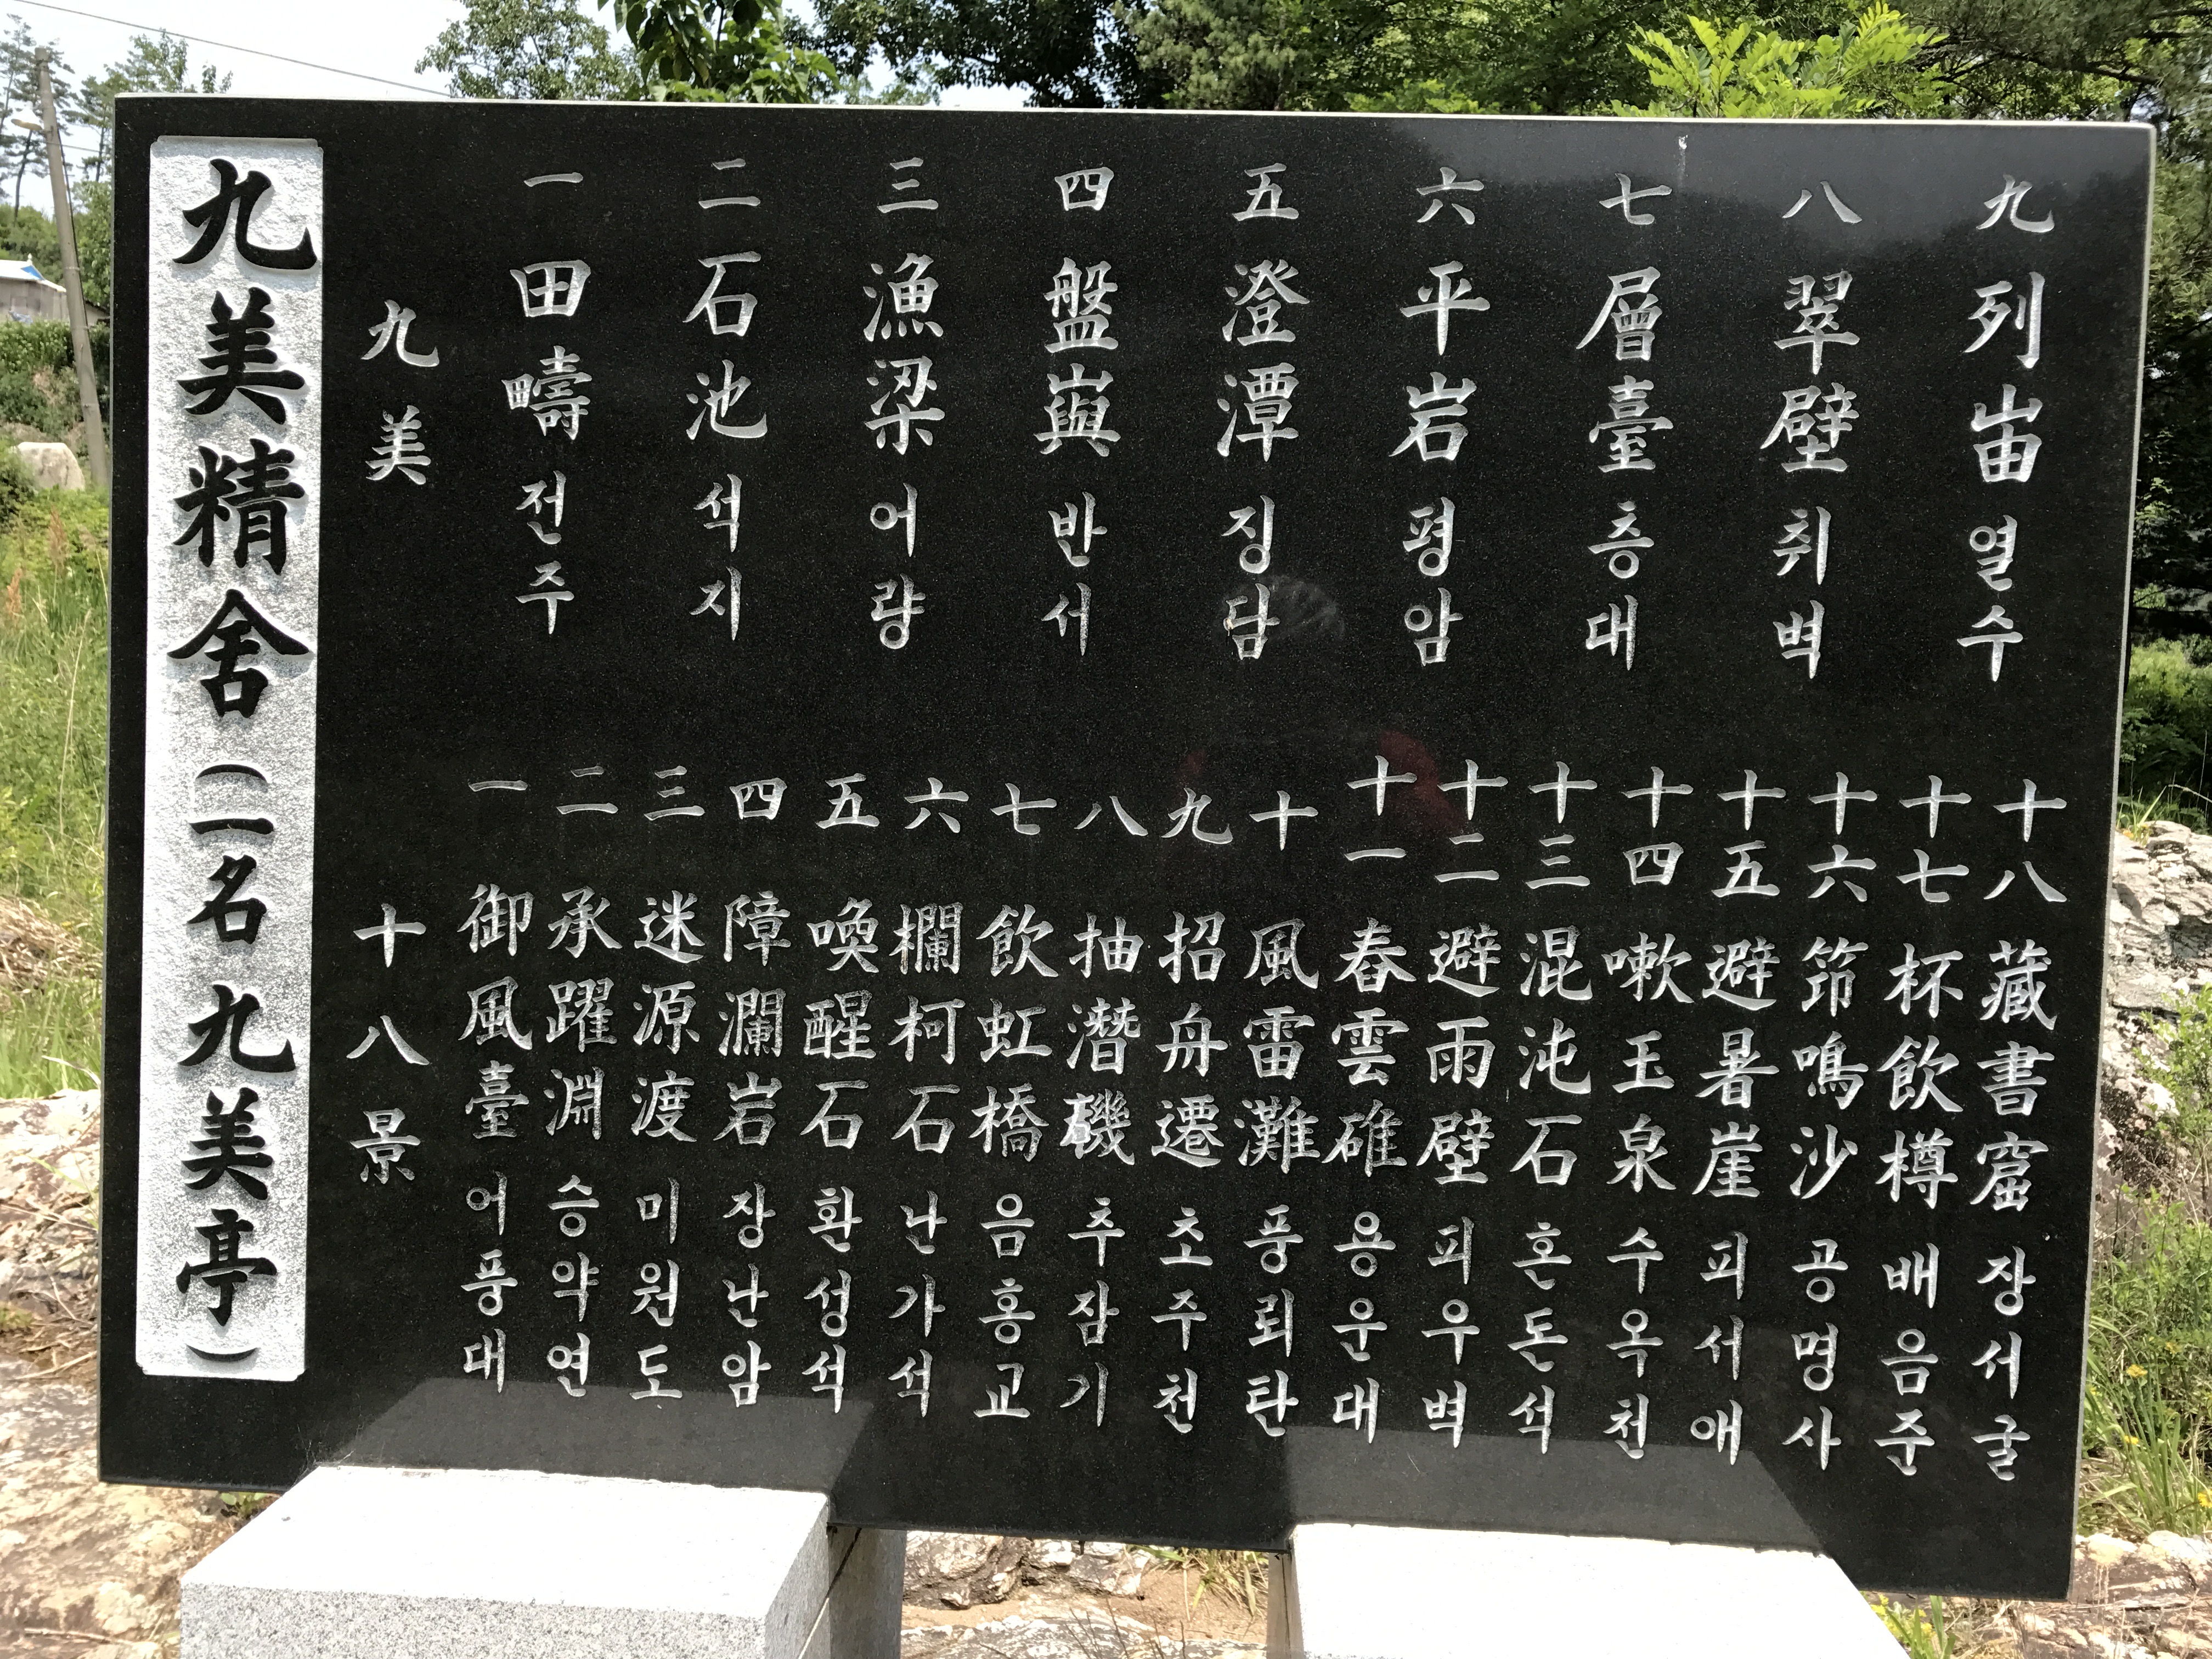 九美精舍(一名 九美亭)
九美
一 田疇 전주
二 石池 석지
三 漁梁 어량
四 盤嶼 반서
五 澄潭 징담
六 平岩 평암
七 層臺 층대
八 翠壁 취벽
九 列岫 열수
十八景
一 御風臺 어풍대
二 承躍淵 승약연
三 迷源渡 미원도
四 障瀾岩 장난암
五 喚醒石 환성석
六 欄柯石 난가석
七 飮虹橋 음홍교
八 抽潛磯 추잠기
九 招舟遷 초주천
十 風雷灘 풍뢰탄
十一 舂雲碓 용운대
十二 避雨壁 피우벽
十三 混沌石 혼돈석
十四 嗽玉泉 수옥천
十五 避暑崖 피서애
十六 筇鳴沙 공명사
十七 杯飮樽 배음준
十八 藏書窟 장서굴